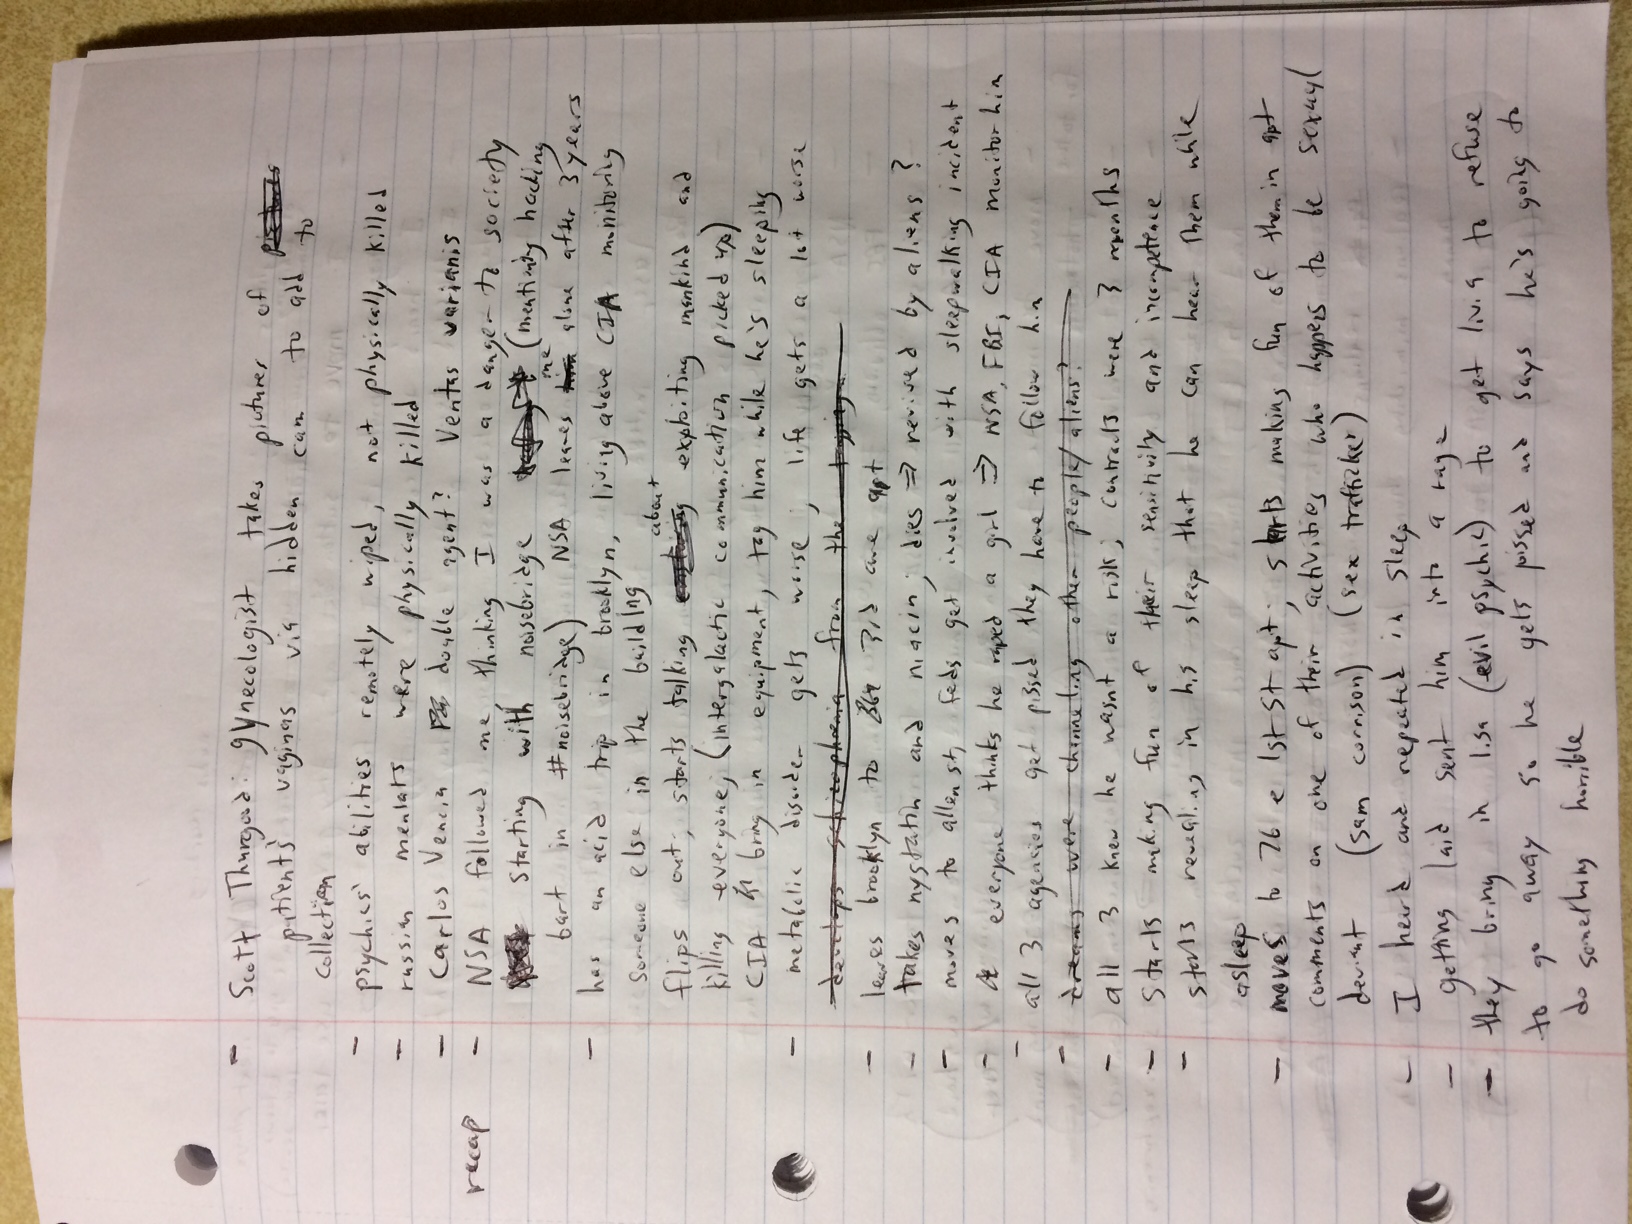 - Scott Thurgood: gynecologist takes pictures of pictures
patient's vaginas via hidden cam to add to
collection
- psychics' abilities remotely wiped, not physically killed
- russian mentats were physically killed
- Carlos Vencia double agent? Ventas varianis
recap - NSA followed me, thinking I was a danger to society
starting with noisebridge (mentioning hacking
bart in #noisebridge) NSA leaves him me alone after 3 years
- has an acid trip in brooklyn, living above CIA monitoring
someone else in the building
about
flips out; starts talking exploiting mankind and
killing everyone; (intergalactic communication picked up)
CIA bring in equipment, tag him while he's sleeping
- metabolic disorder gets worse; life gets a lot worse
develops schizophrenia from the
- leaves brooklyn to 3rd ave apt
- takes nystatin and niacin; dies ⇒ revived by aliens?
- moves to allen st, feds get involved with sleepwalking incident
- everyone thinks he raped a girl ⇒ NSA, FBI, CIA monitor him
- all 3 agencies get pissed they have to follow him
- dreams were channeling other people/aliens?
- all 3 knew he wasnt a risk; contracts were 3 months
- starts making fun of their sensitivity and incompetence
- starts revealing in his sleep that he can hear them while
asleep
- moves to 76 e 1st St apt; starts making fun of them in apt
comments on one of their activities who happens to be sexual
deviant (sam corrison) (sex trafficker)
- I heard and repeated in sleep
- getting laid sent him into a rage
- they bring in lisa (evil psychic) to get livia to refuse
to go away so he gets pissed and says he's going to
do something horrible